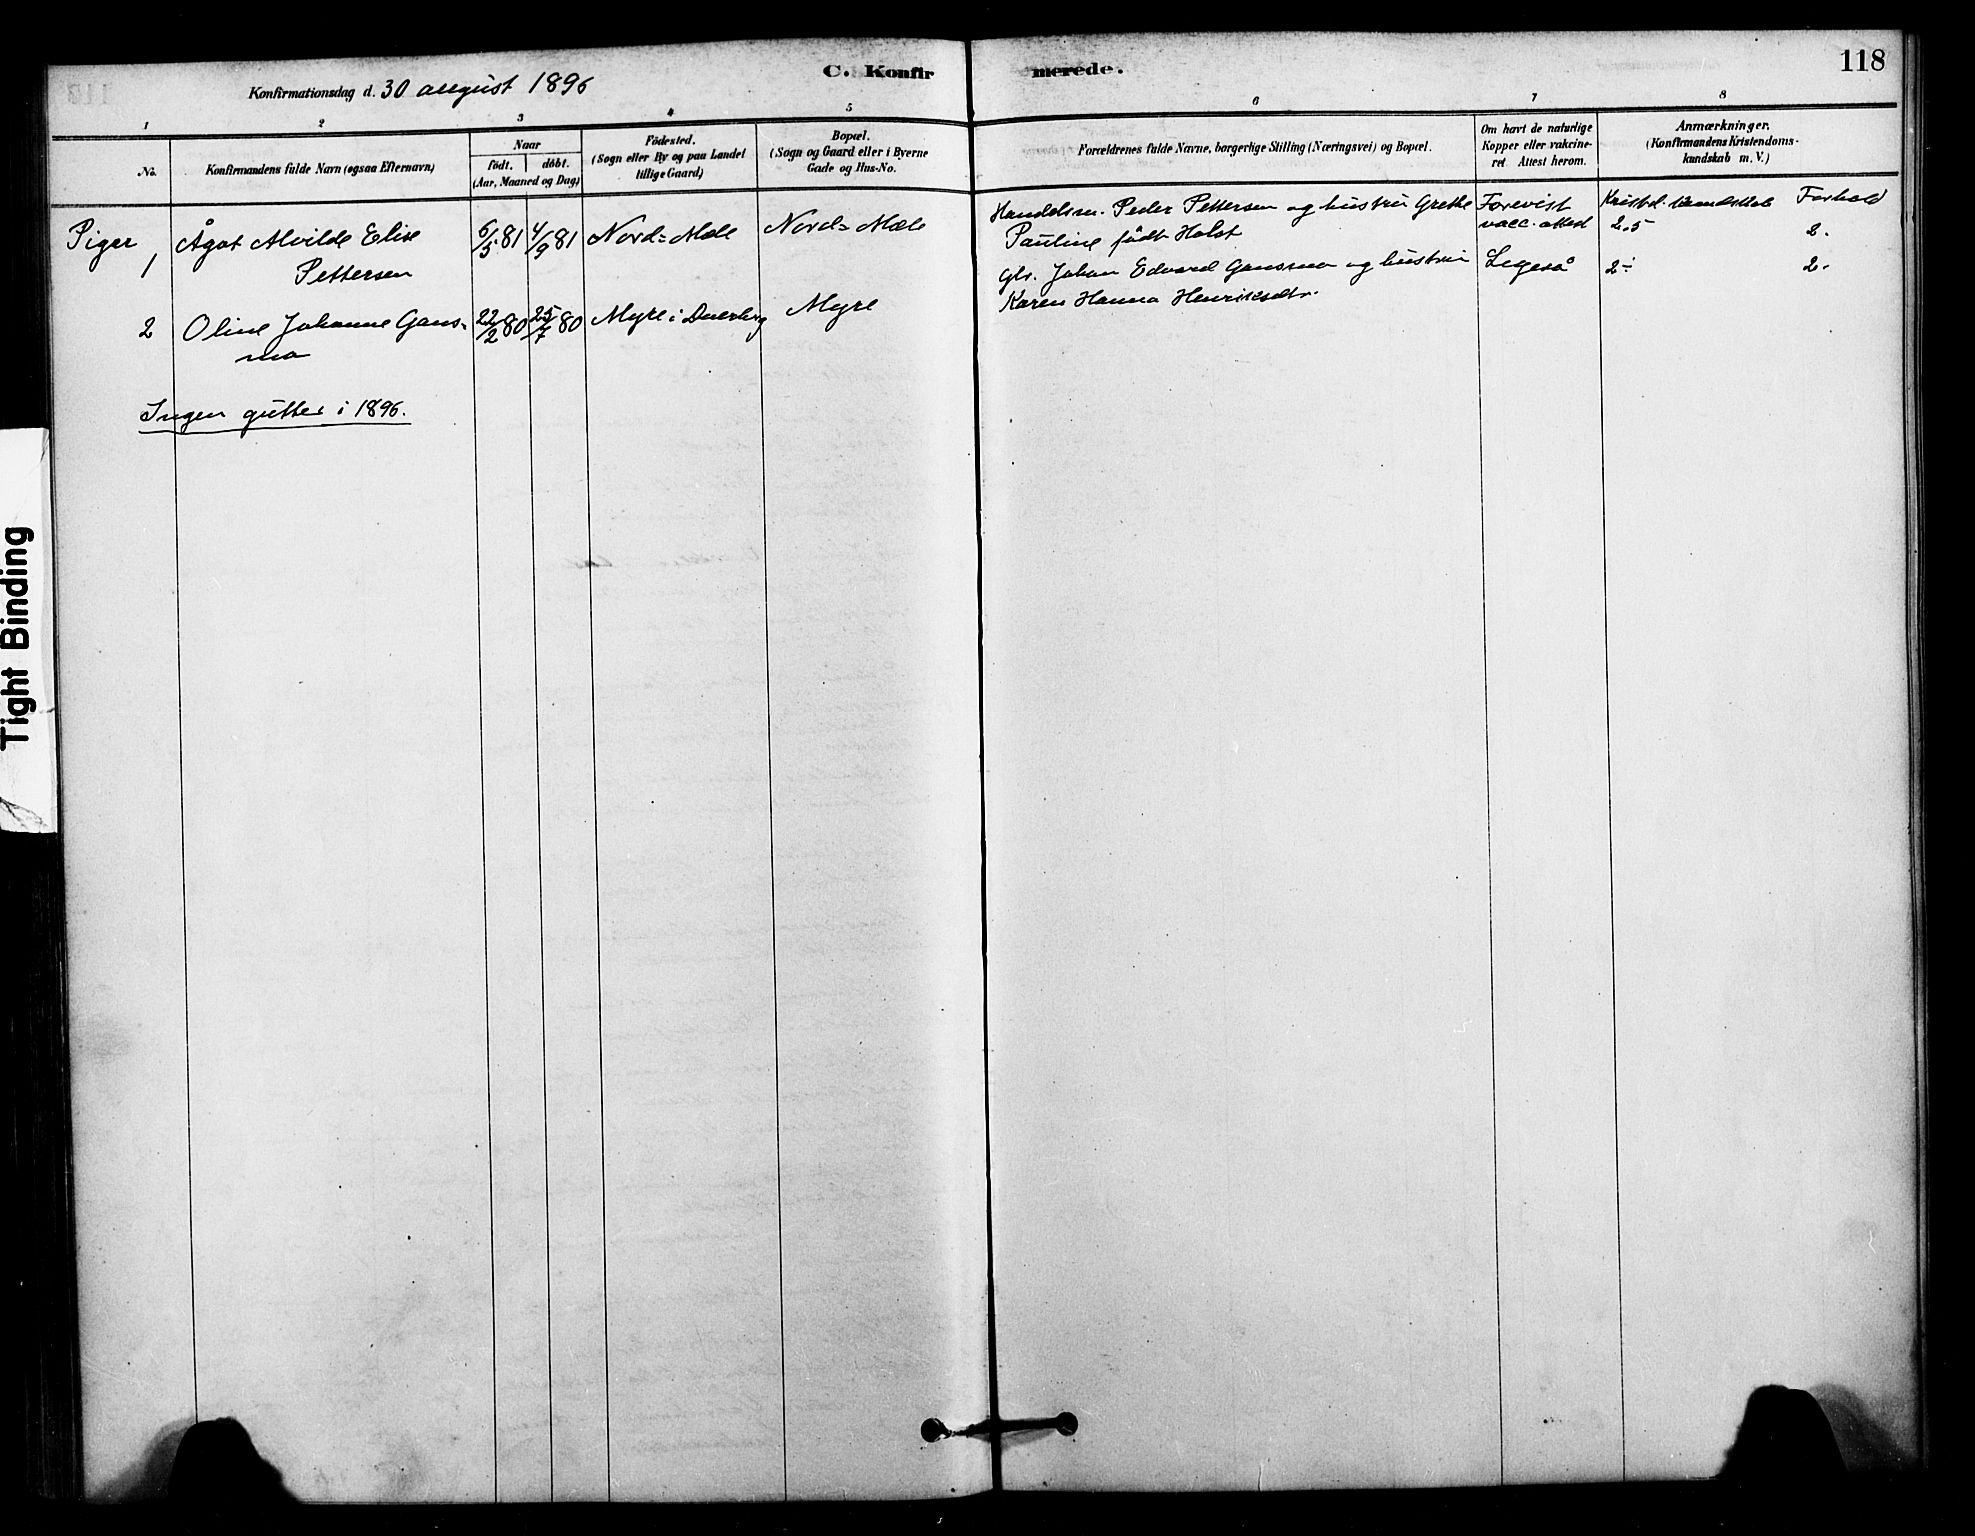 C. Konfirmerede.
118
Konfirmationsdag d. 30 august 1896
1 2 3 4 5 6 7 8
No.
Konfirmandens fulde Navn (ogsaa Efternavn)
Naar
födt. döbt.
(Aar, Maaned og Dag)
Födested.
(Sogn eller By og paa Landet
tillige Gaard)
Bopæl.
(Sogn og Gaard eller i Byerne
Gade og Hus-No.
Forældrenes fulde Navne, borgerlige Stilling (Næringsvei) og Bopæl.
Om havt de naturlige
Kopper eller vakcine-
ret. Attest herom.
Anmærkninger.
(Konfirmandens Kristendoms-
kundskab m. V.)
Piger
1 Ågot Alvilde Elise
Pettersen
6/5 81 4/9 81 Nord=Mæle Nord=Mæle
Handelsm. Peder Pettersen og hustru Grethe
Pauline födt Holst
Forevist
vacc. attest
Kristd. kundskab Forhold
2.5 2.
2 Oline Johanne Gans=
mo
22/2 80 25/7 80 Myre i Dverberg Myre
Gbr. Johan Edvard Gansmo og hustru
Karen Hanna Henriksdtr.
Ligeså 2÷ 2.
Ingen gutter i 1896.
Tight Binding